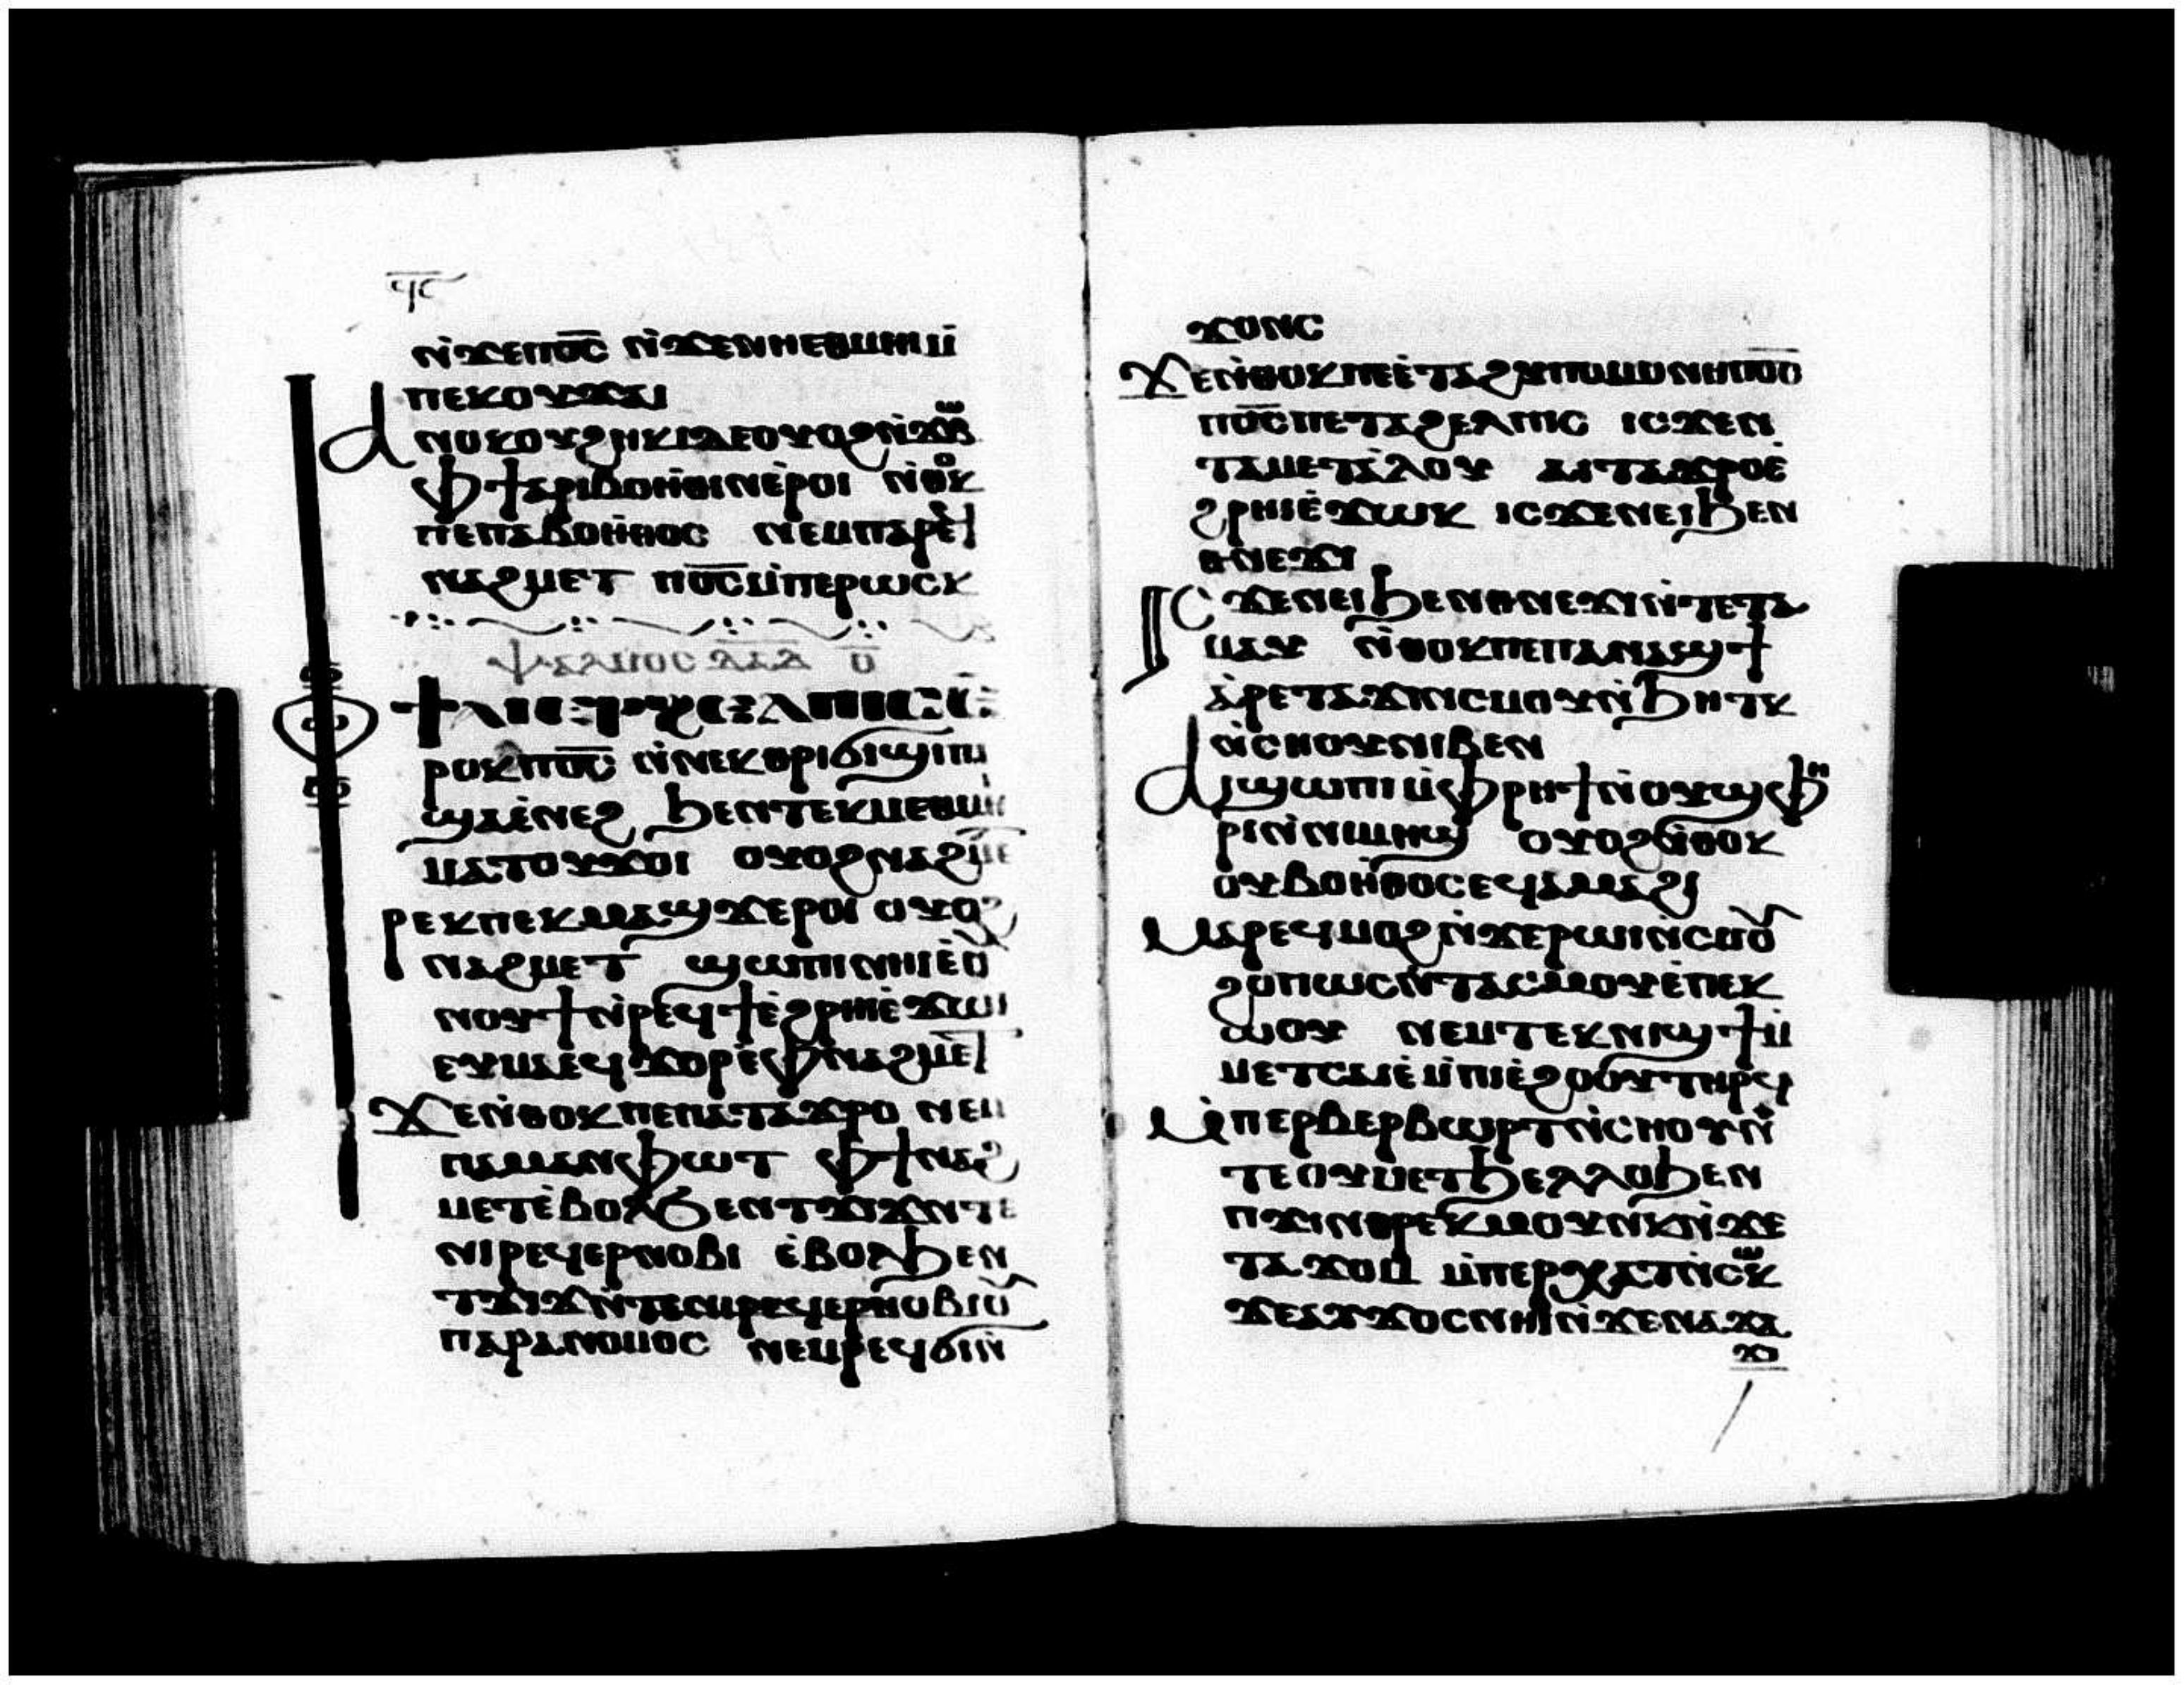 ϥⲋ
ⲛ̀ϫⲉⲡⲟ̅ⲥ̅ ⲛ̀ϫⲉⲛⲏⲉⲑⲙⲏⲓ ⲙ̀
ⲡⲉⲕⲟⲩϫⲁⲓ
ⲁⲛⲟⲕⲟⲩϩⲏⲕⲓⲇⲉⲟⲩⲟϩⲛ̀ϫⲱⲃ
ⲫϯⲁⲣⲓⲃⲟⲏⲑⲓⲛⲉ̀ⲣⲟⲓ ⲛ̀ⲑⲟⲕ
ⲡⲉⲡⲁⲃⲟⲏⲑⲟⲥ ⲛⲉⲙⲡⲁⲣⲉϥ
ⲛⲁϩⲙⲉⲧ ⲡⲟ̅ⲥ̅ⲙ̀ⲡⲉⲣⲱⲥⲕ
ⲯⲁⲗⲙⲟⲥ ⲇⲁⲇ ⲟ̅
ϯⲁⲓⲉⲣϩⲉⲗⲡⲓⲥⲉ̀
ⲣⲟⲕⲡⲟ̅ⲥ̅ ⲛ̀ⲛⲉⲕⲑⲣⲓϭⲓϣⲓⲡⲓ
ϣⲁⲉ̀ⲛⲉϩ ϧⲉⲛⲧⲉⲕⲙⲉⲑⲙⲏⲓ
ⲙⲁⲧⲟⲩϫⲟⲓ ⲟⲩⲟϩⲛⲁϩⲙⲉⲧ
ⲣⲉⲕⲡⲉⲕⲙⲁϣϫⲉⲣⲟⲓ ⲟⲩⲟϩ
ⲛⲁϩⲙⲉⲧ ϣⲱⲡⲓⲛⲏⲓⲉ̀ⲟⲩ
ⲛⲟⲩϯⲛ̀ⲣⲉϥϯⲉ̀ϩⲣⲏⲓⲉ̀ϫⲱⲓ
ⲉⲩⲙⲁⲉϥϫⲟⲣⲉ̀ⲫⲛⲁϩⲙⲉⲧ
ϫⲉⲛ̀ⲑⲟⲕⲡⲉⲡⲁⲧⲁϫⲣⲟ ⲛⲉⲙ
ⲡⲁⲙⲁⲛⲫⲱⲧ ⲫϯⲛⲁϩ
ⲙⲉⲧⲉ̀ⲃⲟⲗϧⲉⲛⲧϫⲓϫⲛ̀ⲧⲉ
ⲛⲓⲣⲉϥⲉⲣⲛⲟⲃⲓ ⲉ̀ⲃⲟⲗϧⲉⲛ
ⲧϫⲓϫⲛ̀ⲧⲉⲛⲓⲣⲉϥⲉⲣⲛⲟⲃⲓⲟⲩ
ⲡⲁⲣⲁⲛⲟⲙⲟⲥ ⲛⲉⲙⲣⲉϥϭⲓⲛ̀
ϫⲟⲛⲥ
ϫⲉⲛ̀ⲑⲟⲕⲡⲉⲉ̀ⲧⲁϩⲩⲡⲟⲙⲟⲛⲏⲡⲟ̅ⲥ̅
ⲡⲟ̅ⲥ̅ⲡⲉⲧⲁϩⲉⲗⲡⲓⲥ ⲓⲥϫⲉⲛ
ⲧⲁⲙⲉⲧⲁ̀ⲗⲟⲩ ⲁⲓⲧⲁϫⲣⲟⲉ̀
ϩⲣⲏⲓⲉ̀ϫⲱⲕ ⲓⲥϫⲉⲛⲉⲓϧⲉⲛ
ⲑⲛⲉϫⲓ
ⲓⲥϫⲉⲛⲉⲓϧⲉⲛⲑⲛⲉϫⲓⲛ̀ⲧⲉⲧⲁ
ⲙⲁⲩ ⲛ̀ⲑⲟⲕⲡⲉⲡⲁⲛⲁϣϯ
ⲁ̀ⲣⲉⲧⲁϫⲓⲛⲥⲙⲟⲩⲛ̀ϧⲏⲧⲕ
ⲛ̀ⲥⲏⲟⲩⲛⲓⲃⲉⲛ
ⲁⲓϣⲱⲡⲓⲙ̀ⲫⲣⲏϯⲛ̀ⲟⲩϣⲫⲏ
ⲣⲓⲛ̀ⲛⲓⲙⲏϣ ⲟⲩⲟϩⲛ̀ⲑⲟⲕ
ⲟⲩⲃⲟⲏⲑⲟⲥⲉϥⲁⲙⲁϩⲓ
ⲙⲁⲣⲉϥⲙⲟϩⲛ̀ϫⲉⲣⲱⲓⲛ̀ⲥⲙⲟⲩ
ϩⲟⲡⲱⲥⲛ̀ⲧⲁⲥⲙⲟⲩⲉ̀ⲡⲉⲕ
ⲱ̀ⲟⲩ ⲛⲉⲙⲧⲉⲕⲛⲓϣϯⲙ̀
ⲙⲉⲧⲥⲁⲓⲉ̀ⲙ̀ⲡⲓⲉ̀ϩⲟⲟⲩⲧⲏⲣϥ
ⲙ̀ⲡⲉⲣⲃⲉⲣⲃⲱⲣⲧⲛ̀ⲥⲏⲟⲩⲛ̀
ⲧⲉⲟⲩⲙⲉⲧϧⲉⲗⲗⲟϧⲉⲛ
ⲡϫⲓⲛⲑⲣⲉⲕⲙⲟⲩⲛⲕⲛ̀ϫⲉ
ⲧⲁϫⲟⲙ ⲙ̀ⲡⲉⲣⲭⲁⲧⲛ̀ⲥⲱⲕ
ϫⲉⲁⲩϫⲟⲥⲛⲏⲓⲛ̀ϫⲉⲛⲁϫⲁ
ϫⲓ